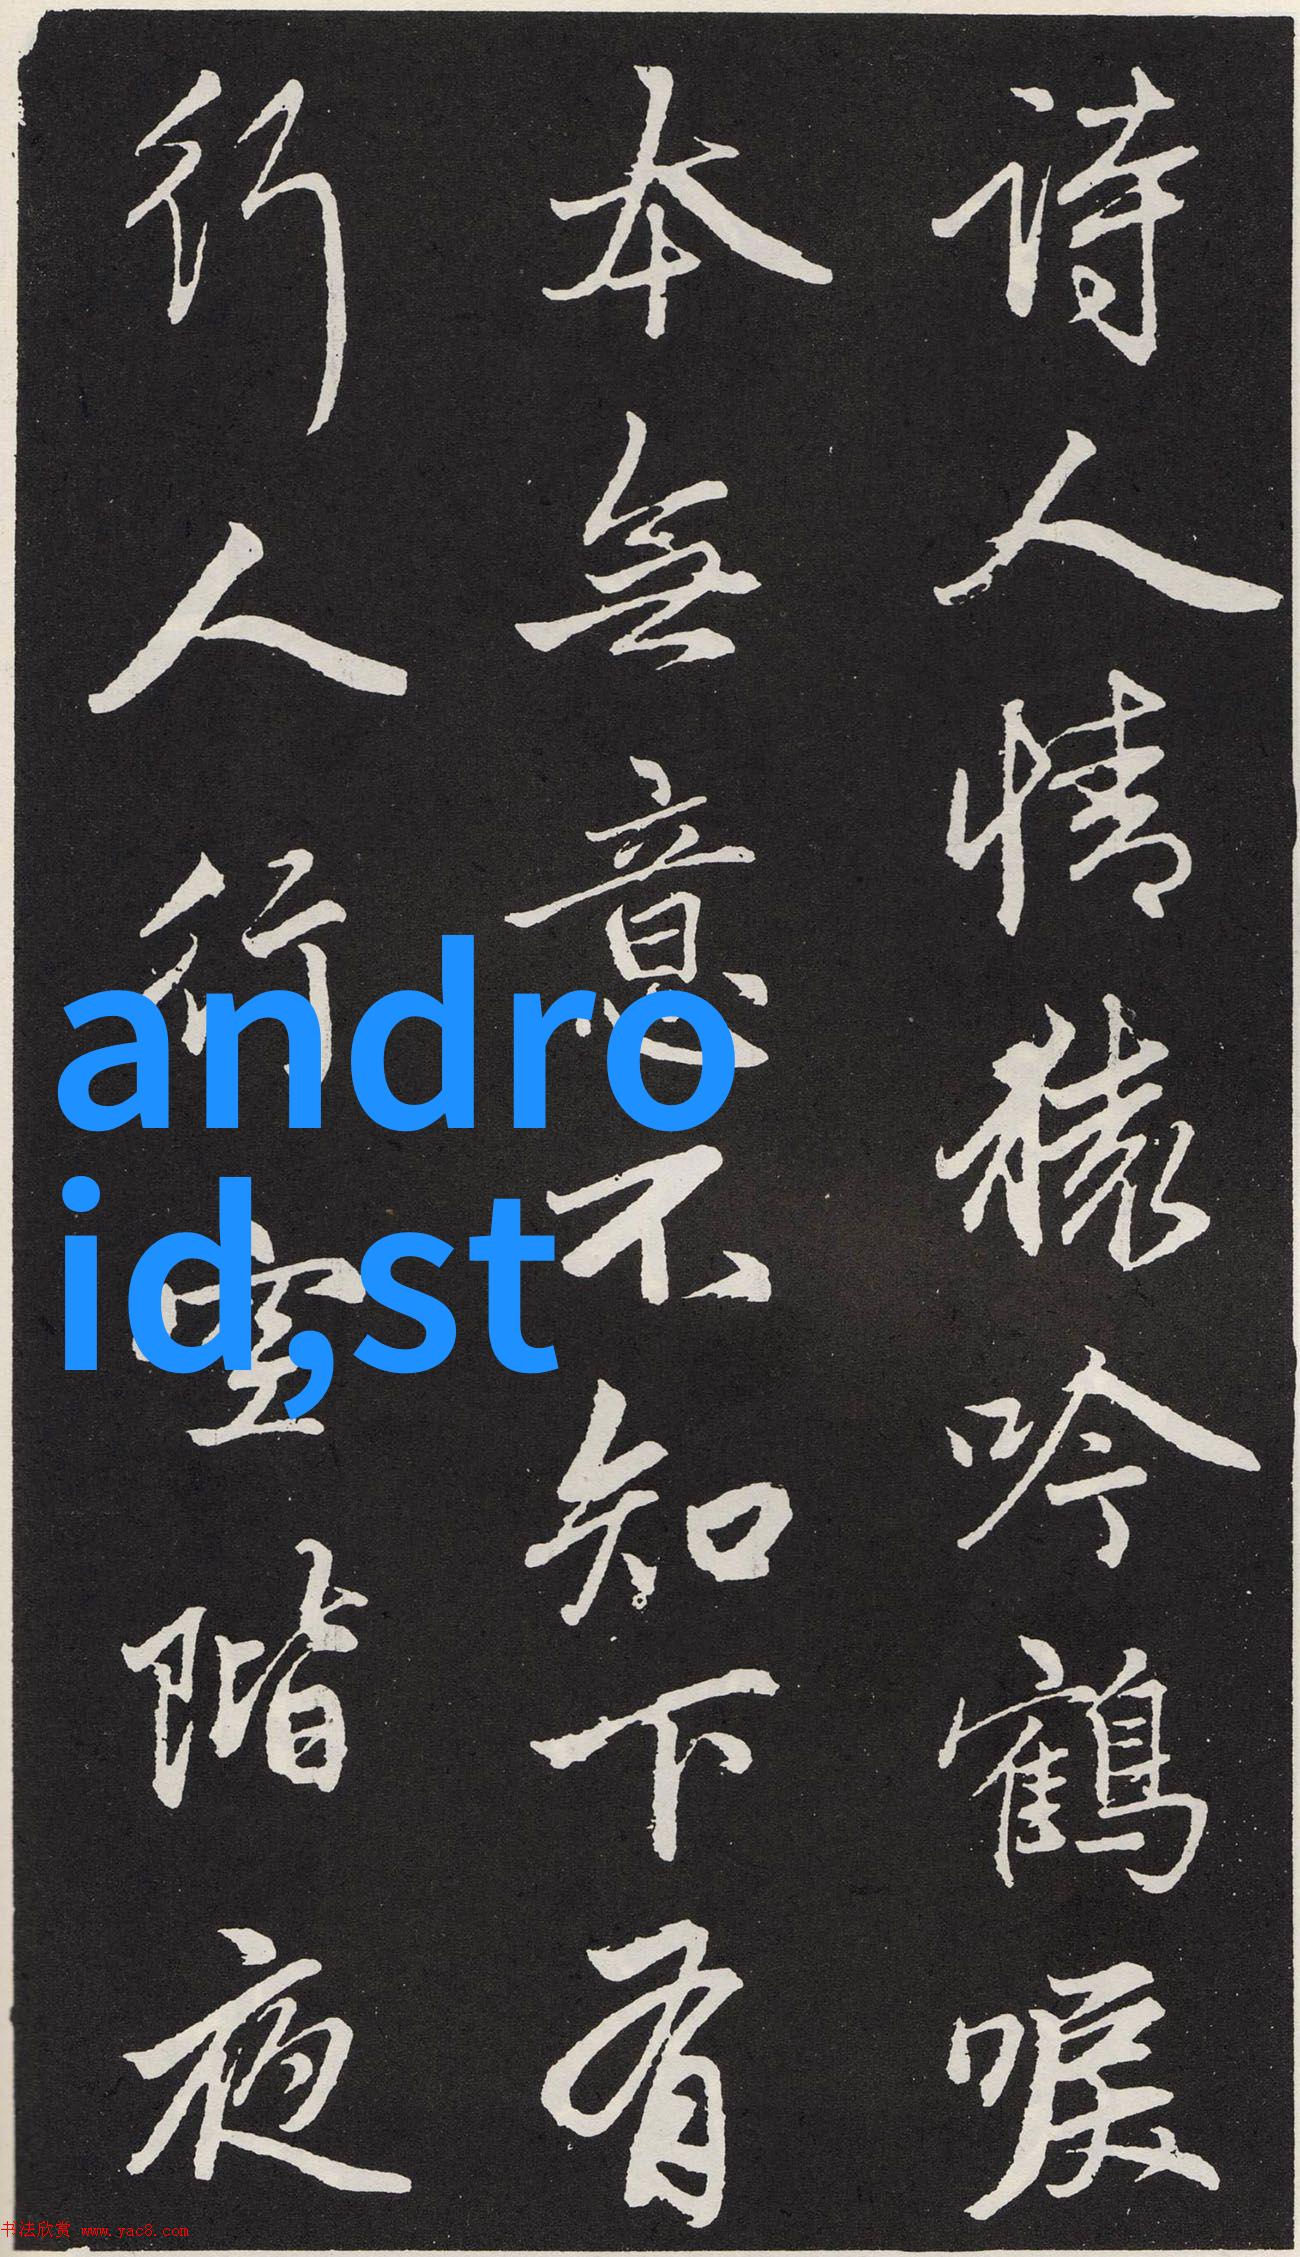 詩人情猿吟鶴唳
本無意不知下有
行人行空階夜
andro
id,st
书法欣赏 www.yac8.com